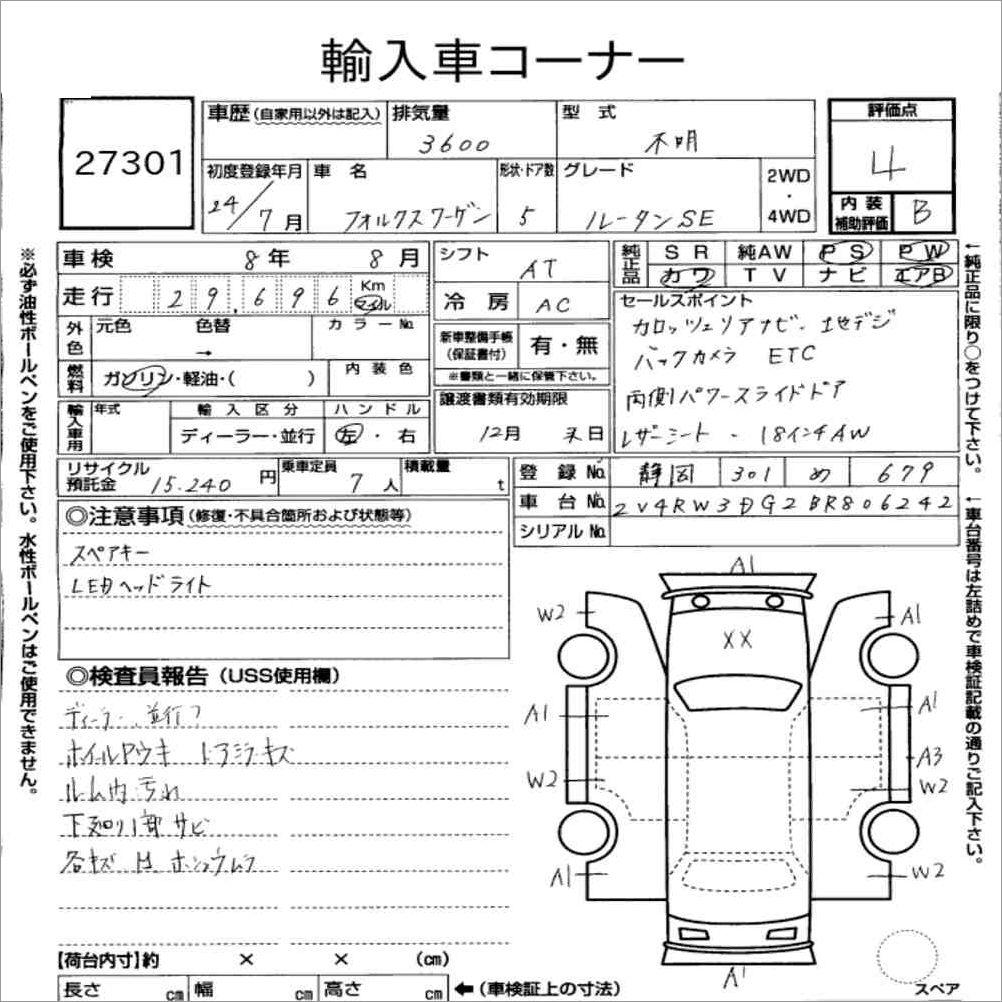 輸入車コーナー
27301
車歴 (自家用以外は記入)
排気量
3600
型式
不明
評価点
4
内装
補助評価
B
初度登録年月
24/7月
車名
フォルクスワーゲン
形状・ドア数
5
グレード
ルータンSE
2WD
・
4WD
車検 8年 8月
走行 29,696 Km マイル
外色
元色 色替
→
カラーNo.
燃料
ガソリン・軽油・( )
内装色
輸入車用
年式
輸入区分
ディーラー・並行
ハンドル
左・右
シフト
AT
冷房 AC
新車整備手帳
(保証書付)
有・無
※書類と一緒に保管下さい。
譲渡書類有効期限
12月 末日
純正品
SR 純AW PS PW
カワ TV ナビ エアB
セールスポイント
カロッツェリアナビ・地デジ
バックカメラ ETC
両側パワースライドドア
レザーシート・18インチAW
←純正品に限り○をつけて下さい。
リサイクル
預託金
15.240円
乗車定員
7人
積載量
t
登録No. 静岡 301 め 679
車台No. 2V4RW3DG2BR806242
シリアルNo.
←車台番号は左詰めで車検証記載の通りご記入下さい。
※必ず油性ボールペンをご使用下さい。水性ボールペンはご使用できません。
◎注意事項 (修復・不具合箇所および状態等)
スペアキー
LEDヘッドライト
◎検査員報告 (USS使用欄)
ディーラー、並行?
ホイールAウキ ドアミラーキズ
ルーム内汚れ
下廻り1部サビ
各キズ H ホシュウムラ
A1
W2
A1
XX
A1
A1
A3
W2
W2
A1
W2
A1
【荷台内寸】約 × × (cm)
長さ cm 幅 cm 高さ cm ←(車検証上の寸法)
スペア